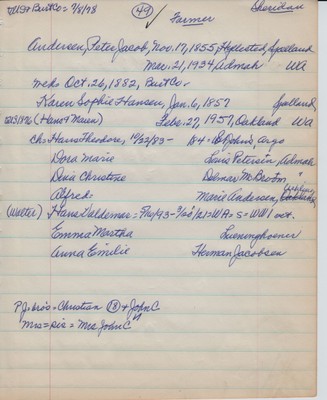 US+BurtCo= 7/8/98 (49) ✓ Farmer Sheridan
Andersen, Peter Jacob, Nov. 17, 1855, Sjælland
Mar. 21, 1934 Admah - WA
wed: Oct. 26, 1882, BurtCo.
Karen Sophie Hansen, Jan. 6, 1857 Sjælland,
(Hans + Maren) Feb. 27, 1957, Oakland WA
Ch: Hans Theodore, 10/22/83 - St John's, Argo
Dora Marie Louis Petersen, Admah
Dena Christine Delmar "
Alfred Marie Andersen,
(Walter) Hans Valdemar= WA= S= WW1 vet.
Emma Martha Lueninghoener
Anna Emilie Herman Jacobsen
PJ= bros= Christian (13) + John C
Mrs= sis= Mrs John C